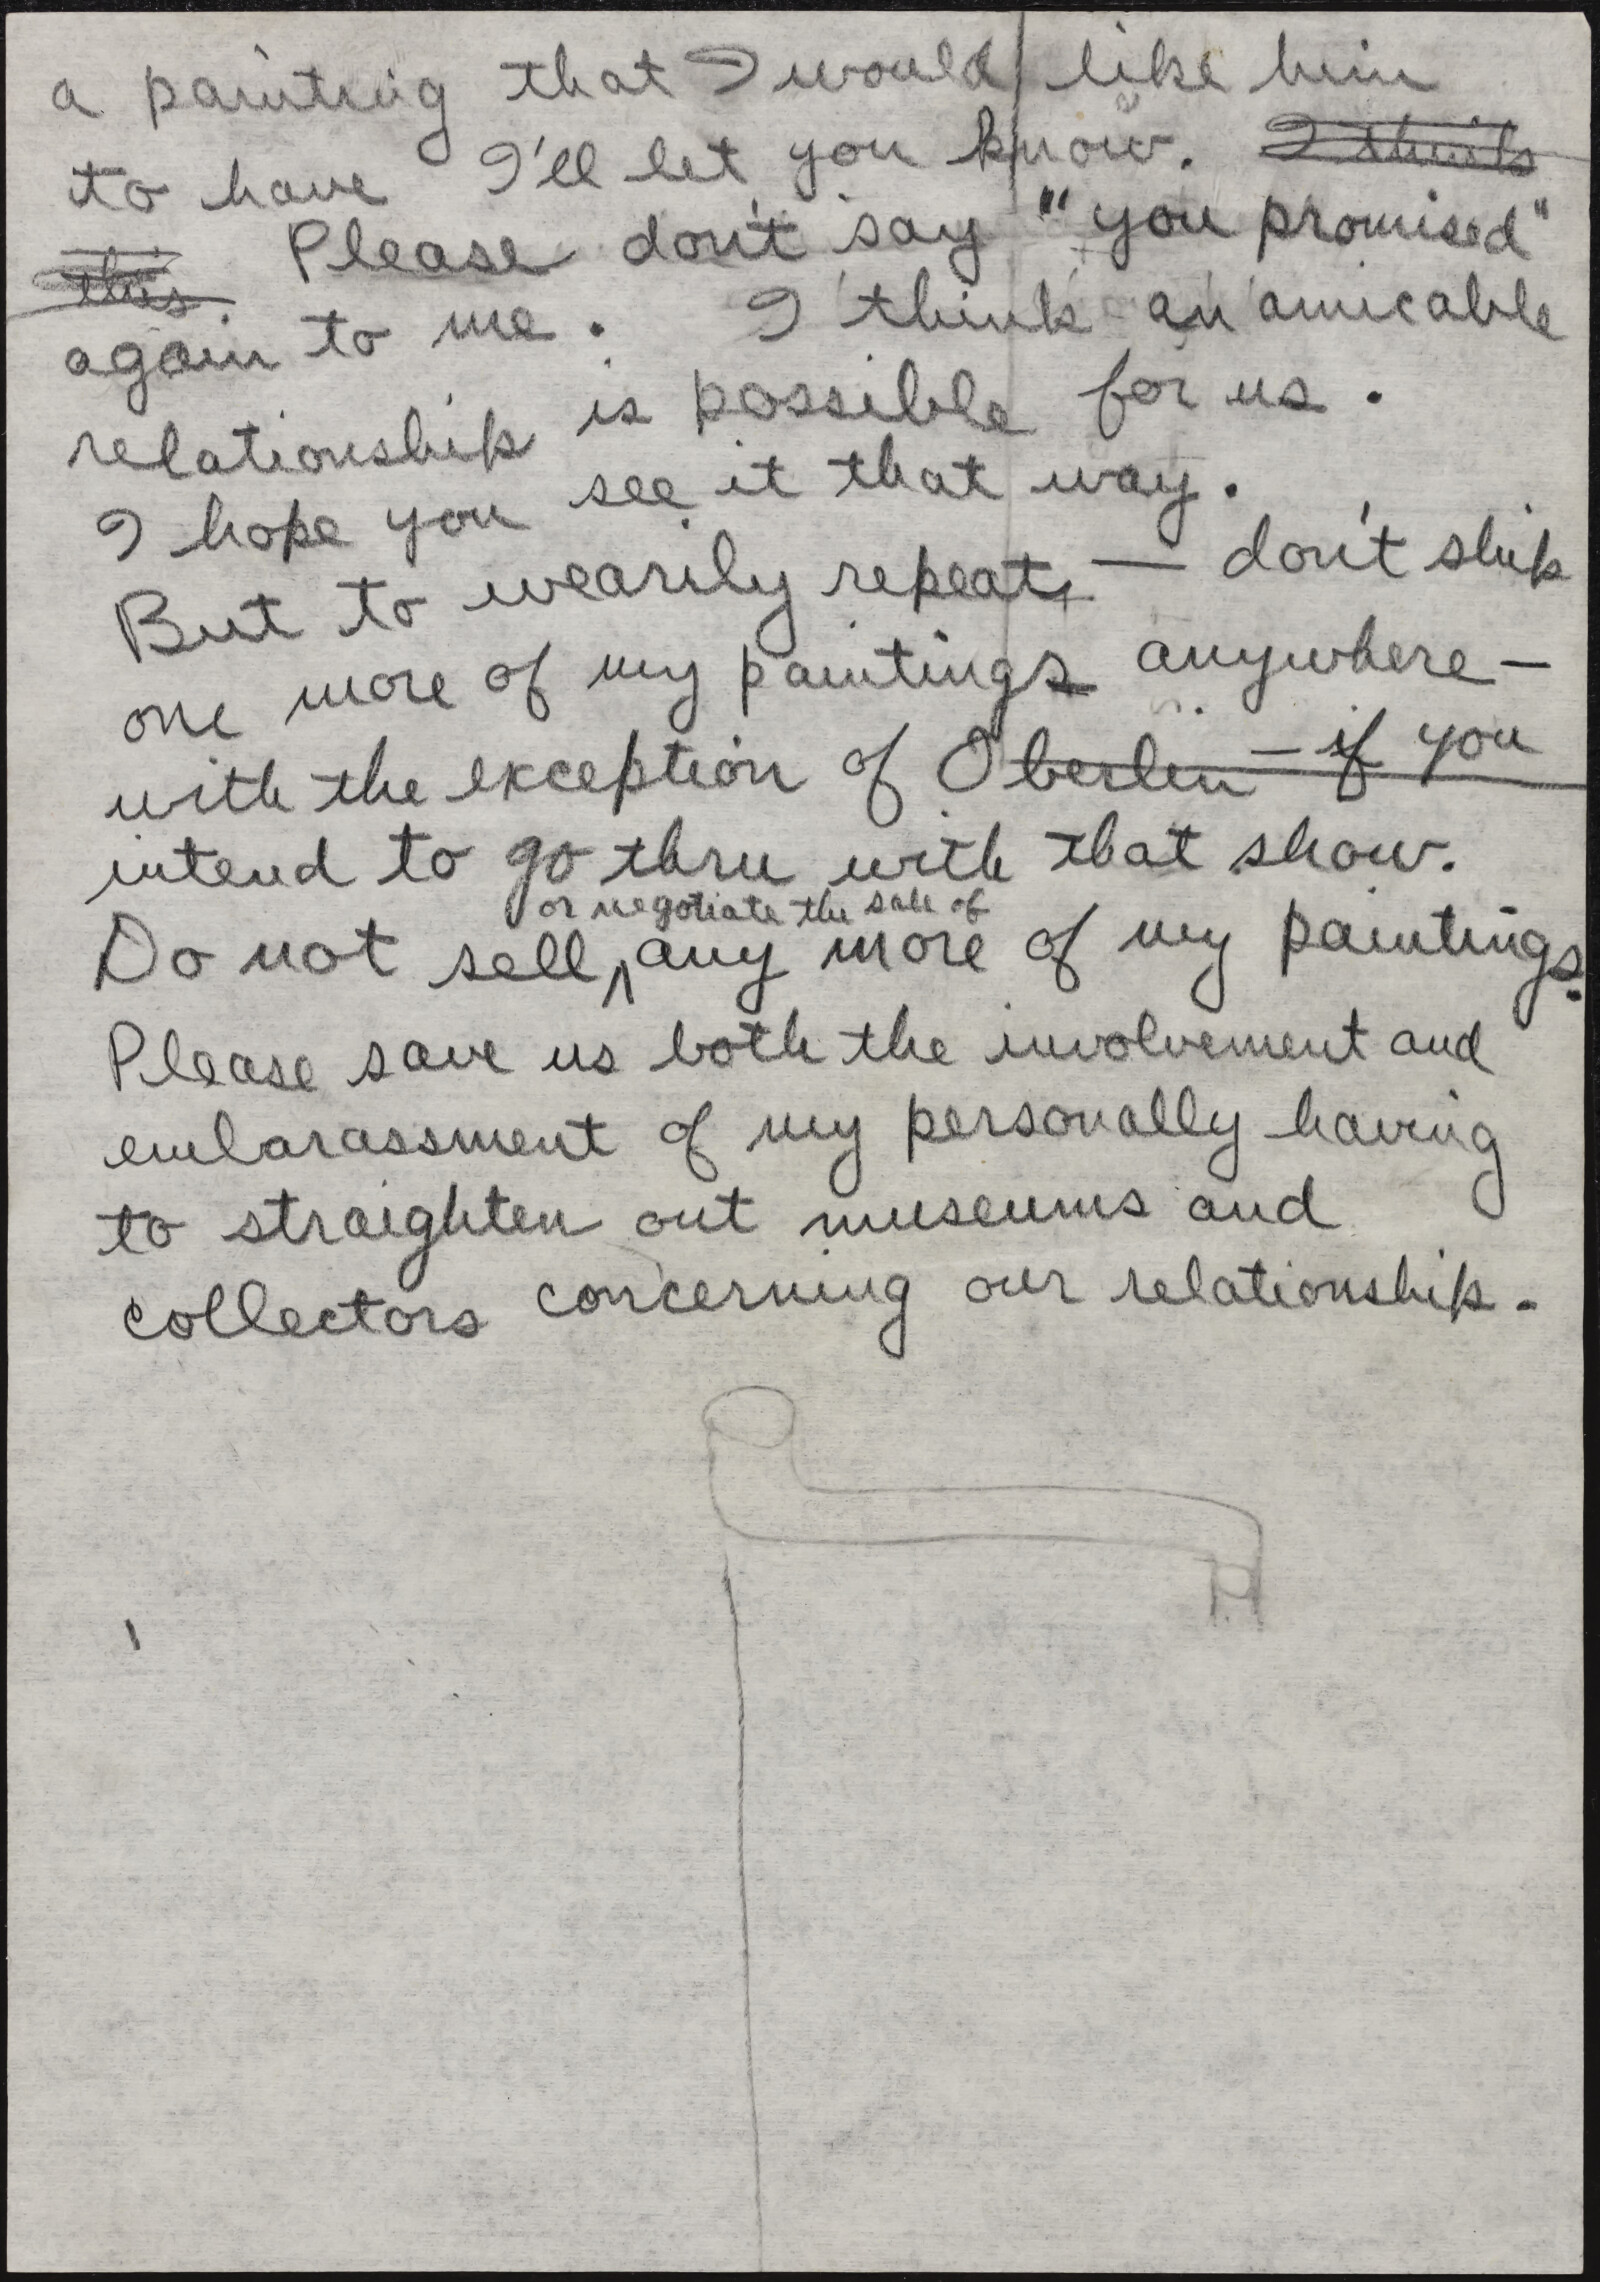 a painting that I would like him
to have I'll let you know. I think
this. Please don't say "" you promised"
again to me. I think an amicable
relationship is possible for us.
I hope you see it that way.
But to wearily repeat, — don't ship
one more of my paintings anywhere —
with the exception of Oberlin — if you
intend to go thru with that show.
or negotiate the sale of
Do not sell ^ any more of my paintings.
Please save us both the involvement and
embarassment of my personally having
to straighten out museums and
collectors concerning our relationship.